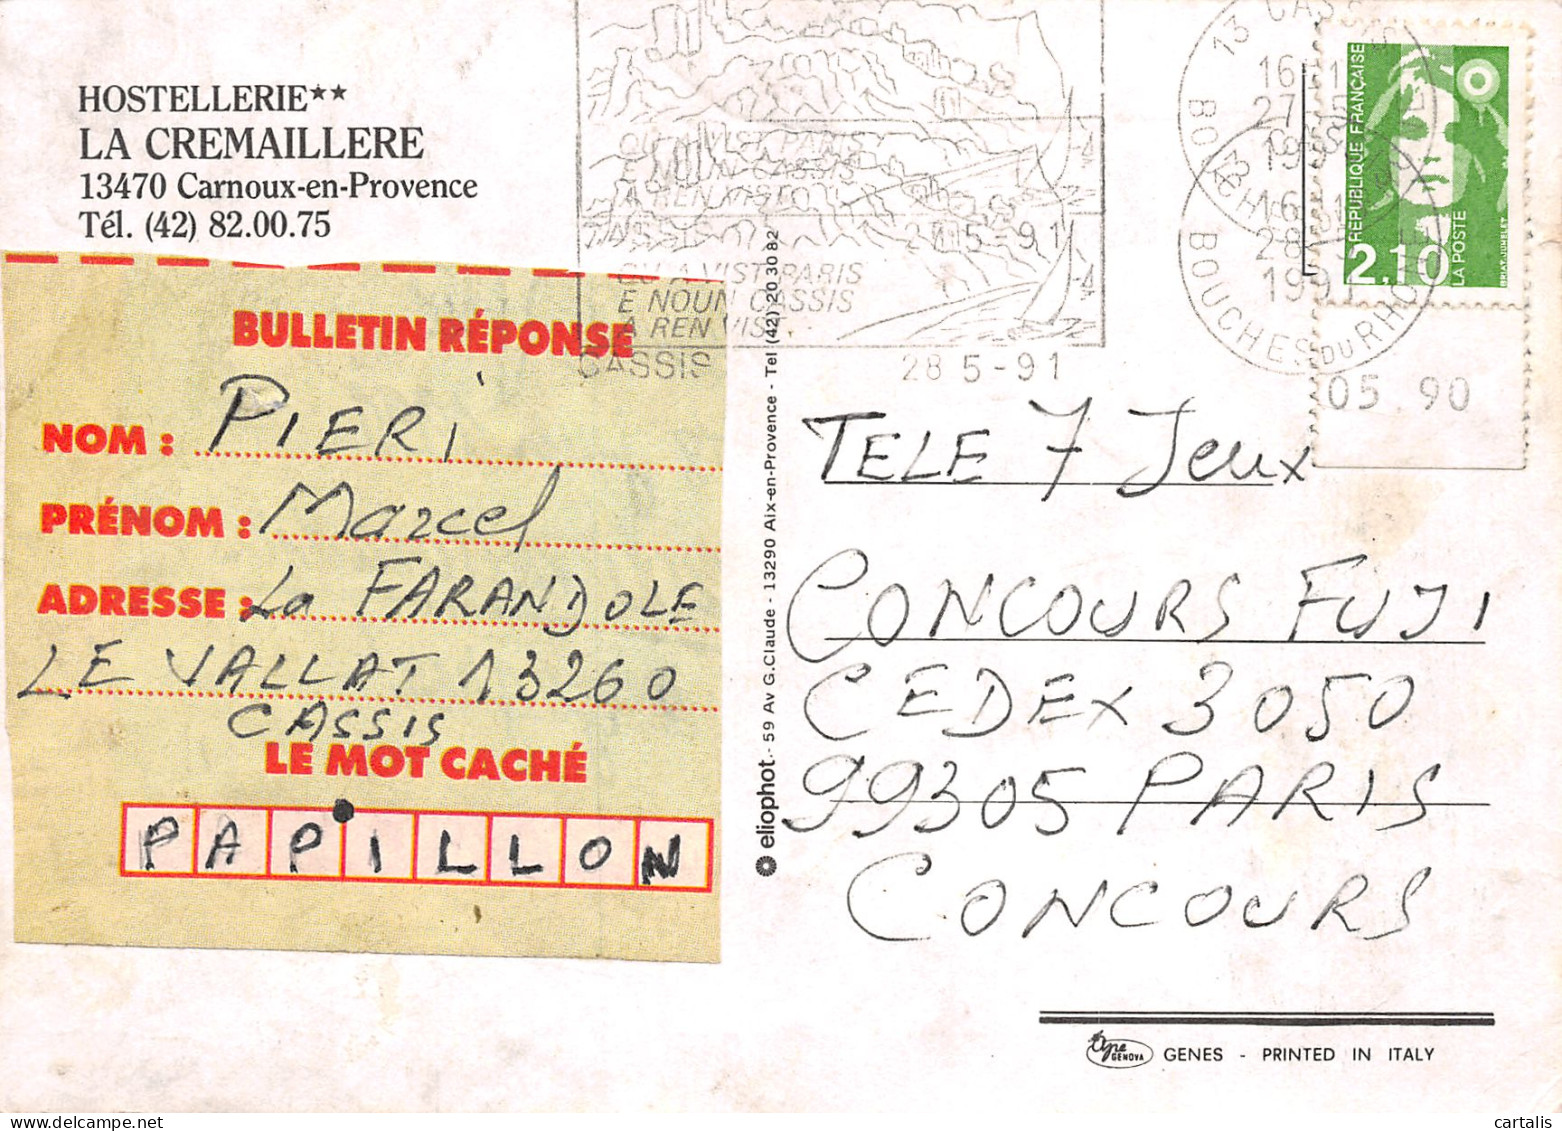 HOSTELLERIE★★
LA CREMAILLERE
13470 Carnoux-en-Provence
Tél. (42) 82.00.75
BULLETIN RÉPONSE
NOM : PIERI
PRÉNOM : Marcel
ADRESSE : La FARANDOLE
LE VALLAT 13260
CASSIS
LE MOT CACHÉ
PAPILLON
QU A VIST PARIS
E NOUN CASSIS
A REN VIST
CASSIS
27 5 - 91
28 5 - 91
13 CASSIS
16 H
27 - 5
1991
16 H
28 - 5
1991
BOUCHES DU RHONE
RÉPUBLIQUE FRANÇAISE
2,10
LA POSTE
BRIAT-JUMELET
05. 90
eliophot. - 59 Av G.Claude - 13290 Aix-en-Provence - Tel (42) 20 30 82
TELE 7 Jeux
CONCOURS FUJI
CEDEX 3050
99305 PARIS
CONCOURS
GENOVA GENES - PRINTED IN ITALY
cartalis